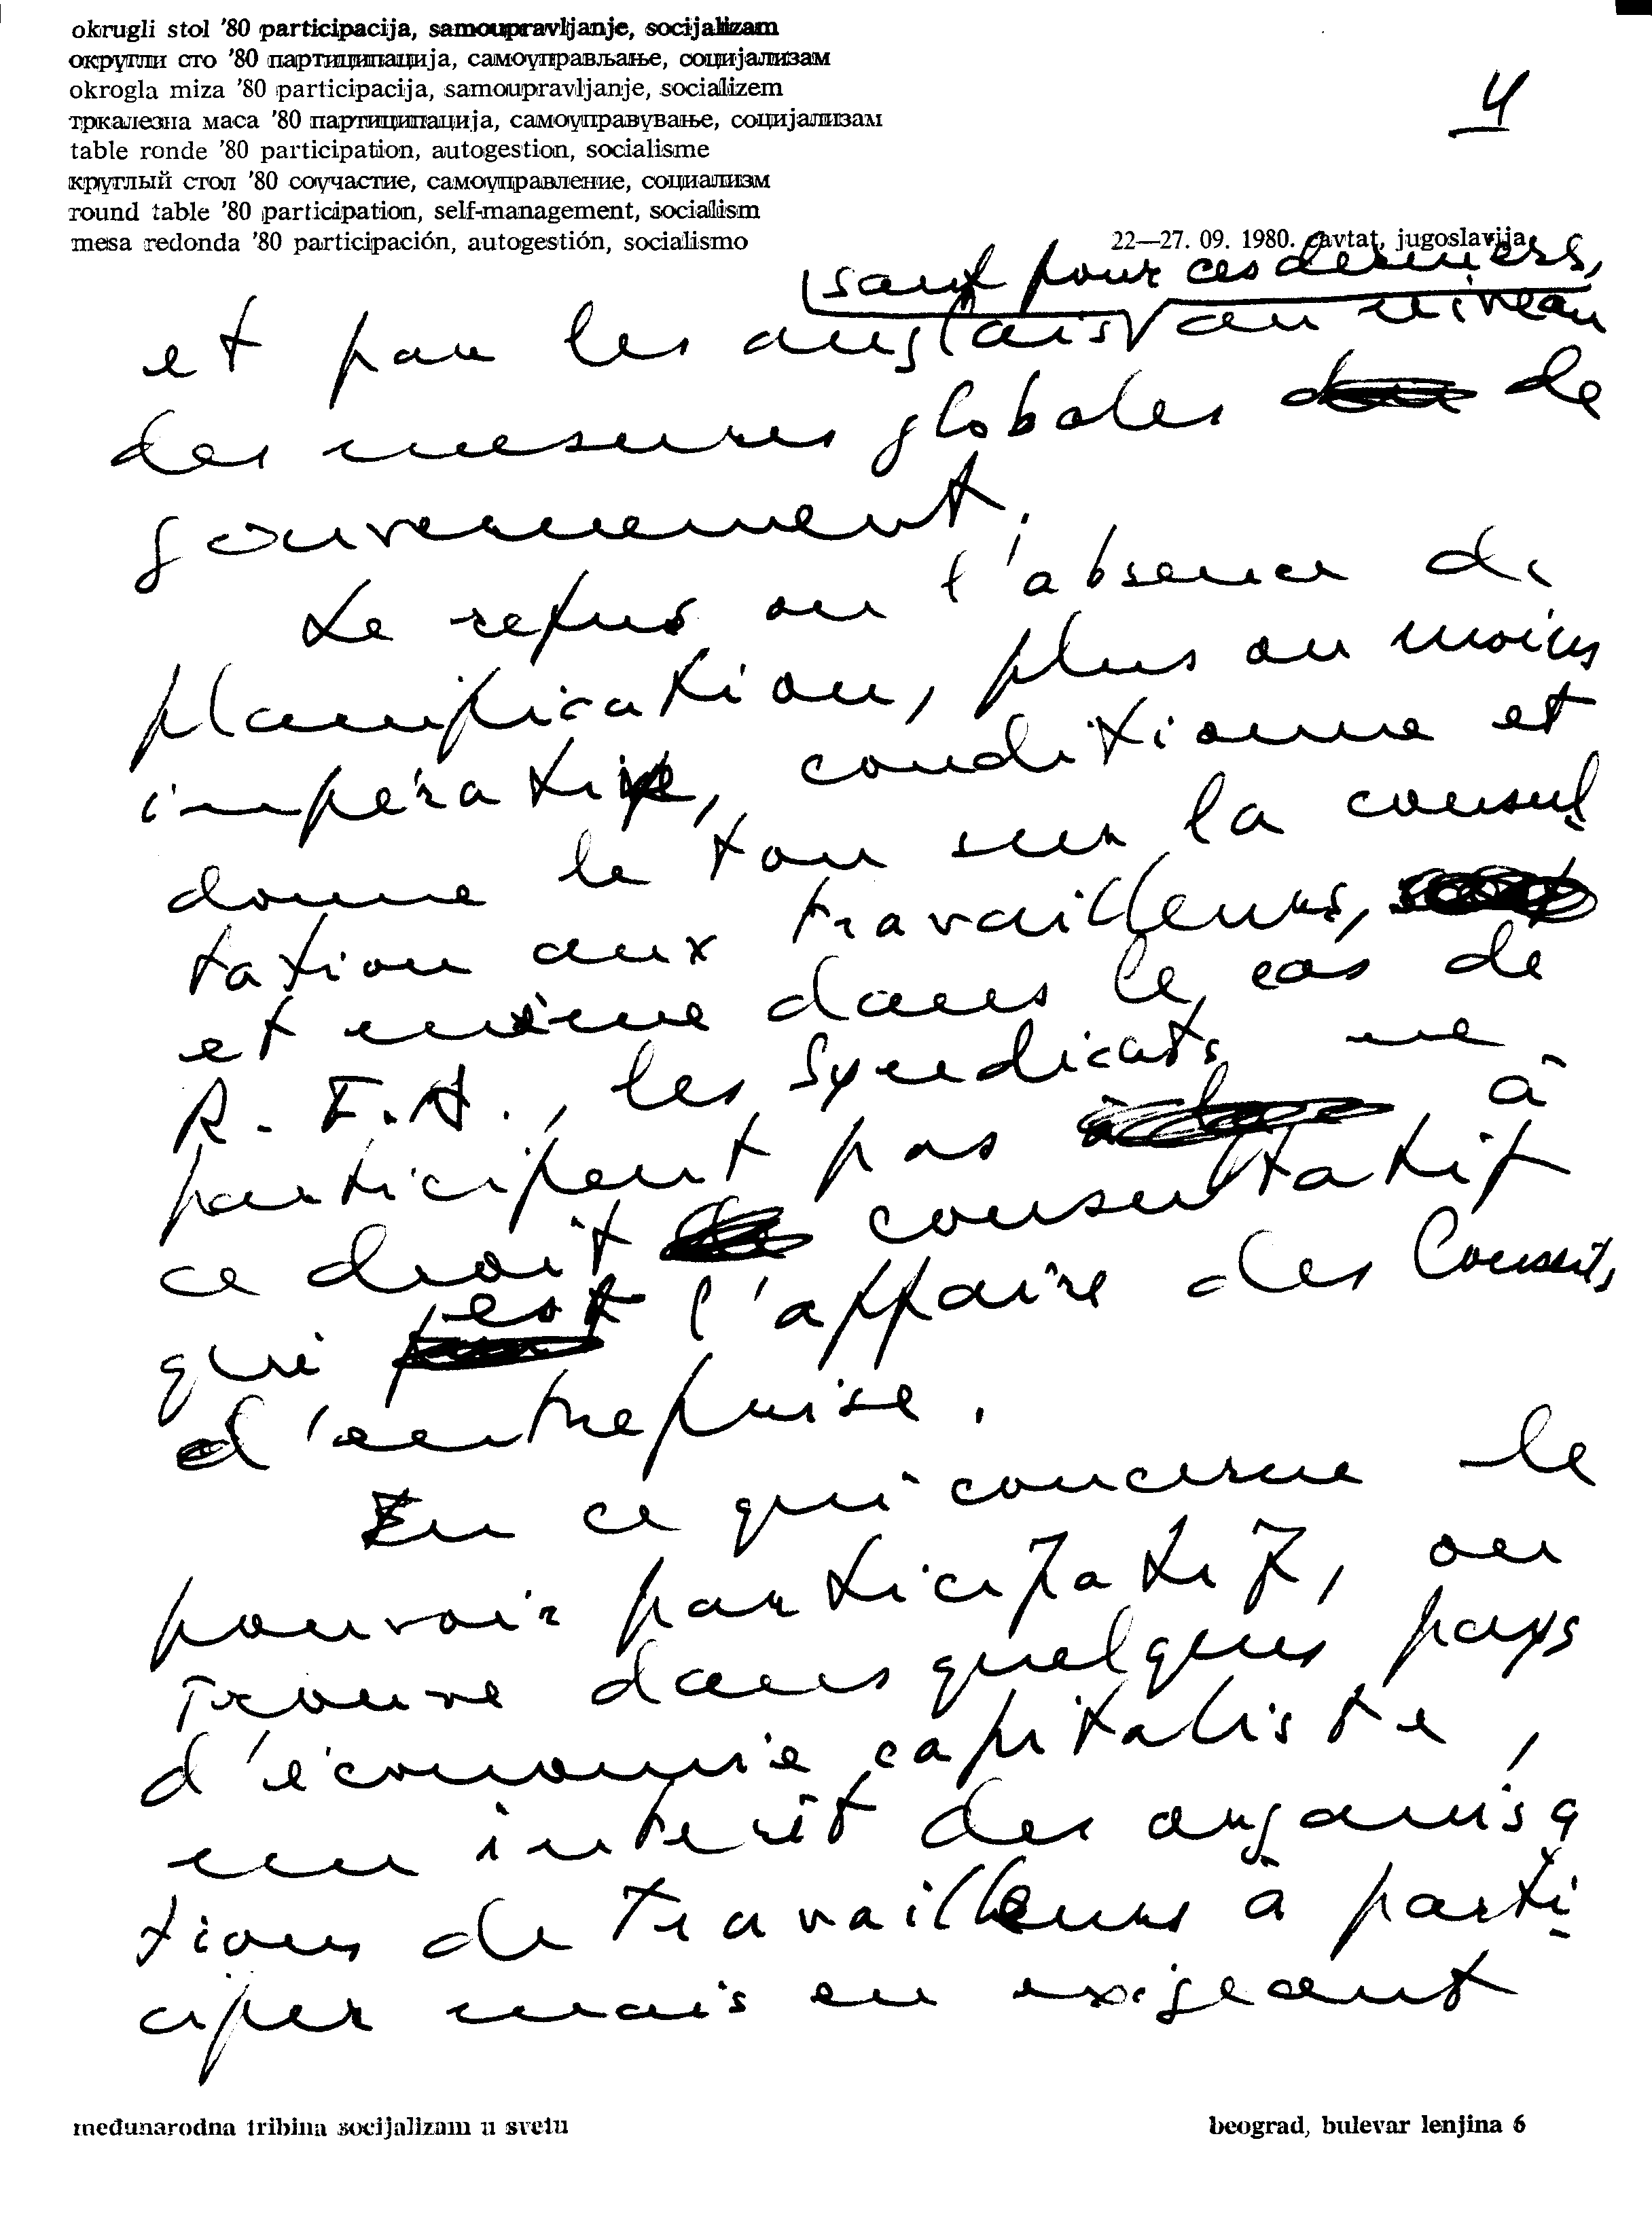 okrugli stol '80 participacija, samoupravljanje, socijalizam
округли сто '80 партиципација, самоуправљање, социјализам
okrogla miza '80 participacija, samoupravljanje, socializem
тркалезна маса '80 партиципација, самоуправување, социјализам
table ronde '80 participation, autogestion, socialisme
круглый стол '80 соучастие, самоуправление, социализм
round table '80 participation, self-management, socialism
mesa redonda '80 participación, autogestión, socialismo
4
22—27. 09. 1980. cavtat, jugoslavija
sauf pour ces derniers,
et par les anglais au niveau
des mesures globales de
gouvernement.
Le refus ou l'absence de
planification, plus ou moins
impérative, conditionne et
donne le ton sur la consul-
tation aux travailleurs,
et même dans le cas de
R.F.A., les Syndicats ne
participent pas à
ce droit consultatif
qui est l'affaire des Conseils
d'entreprise.
En ce qui concerne le
pouvoir participatif, on
trouve dans quelques pays
d'économie capitaliste,
un intérêt des organisa
tions de travailleurs à parti-
ciper mais en exigeant
međunarodna tribina socijalizam u svetu
beograd, bulevar lenjina 6